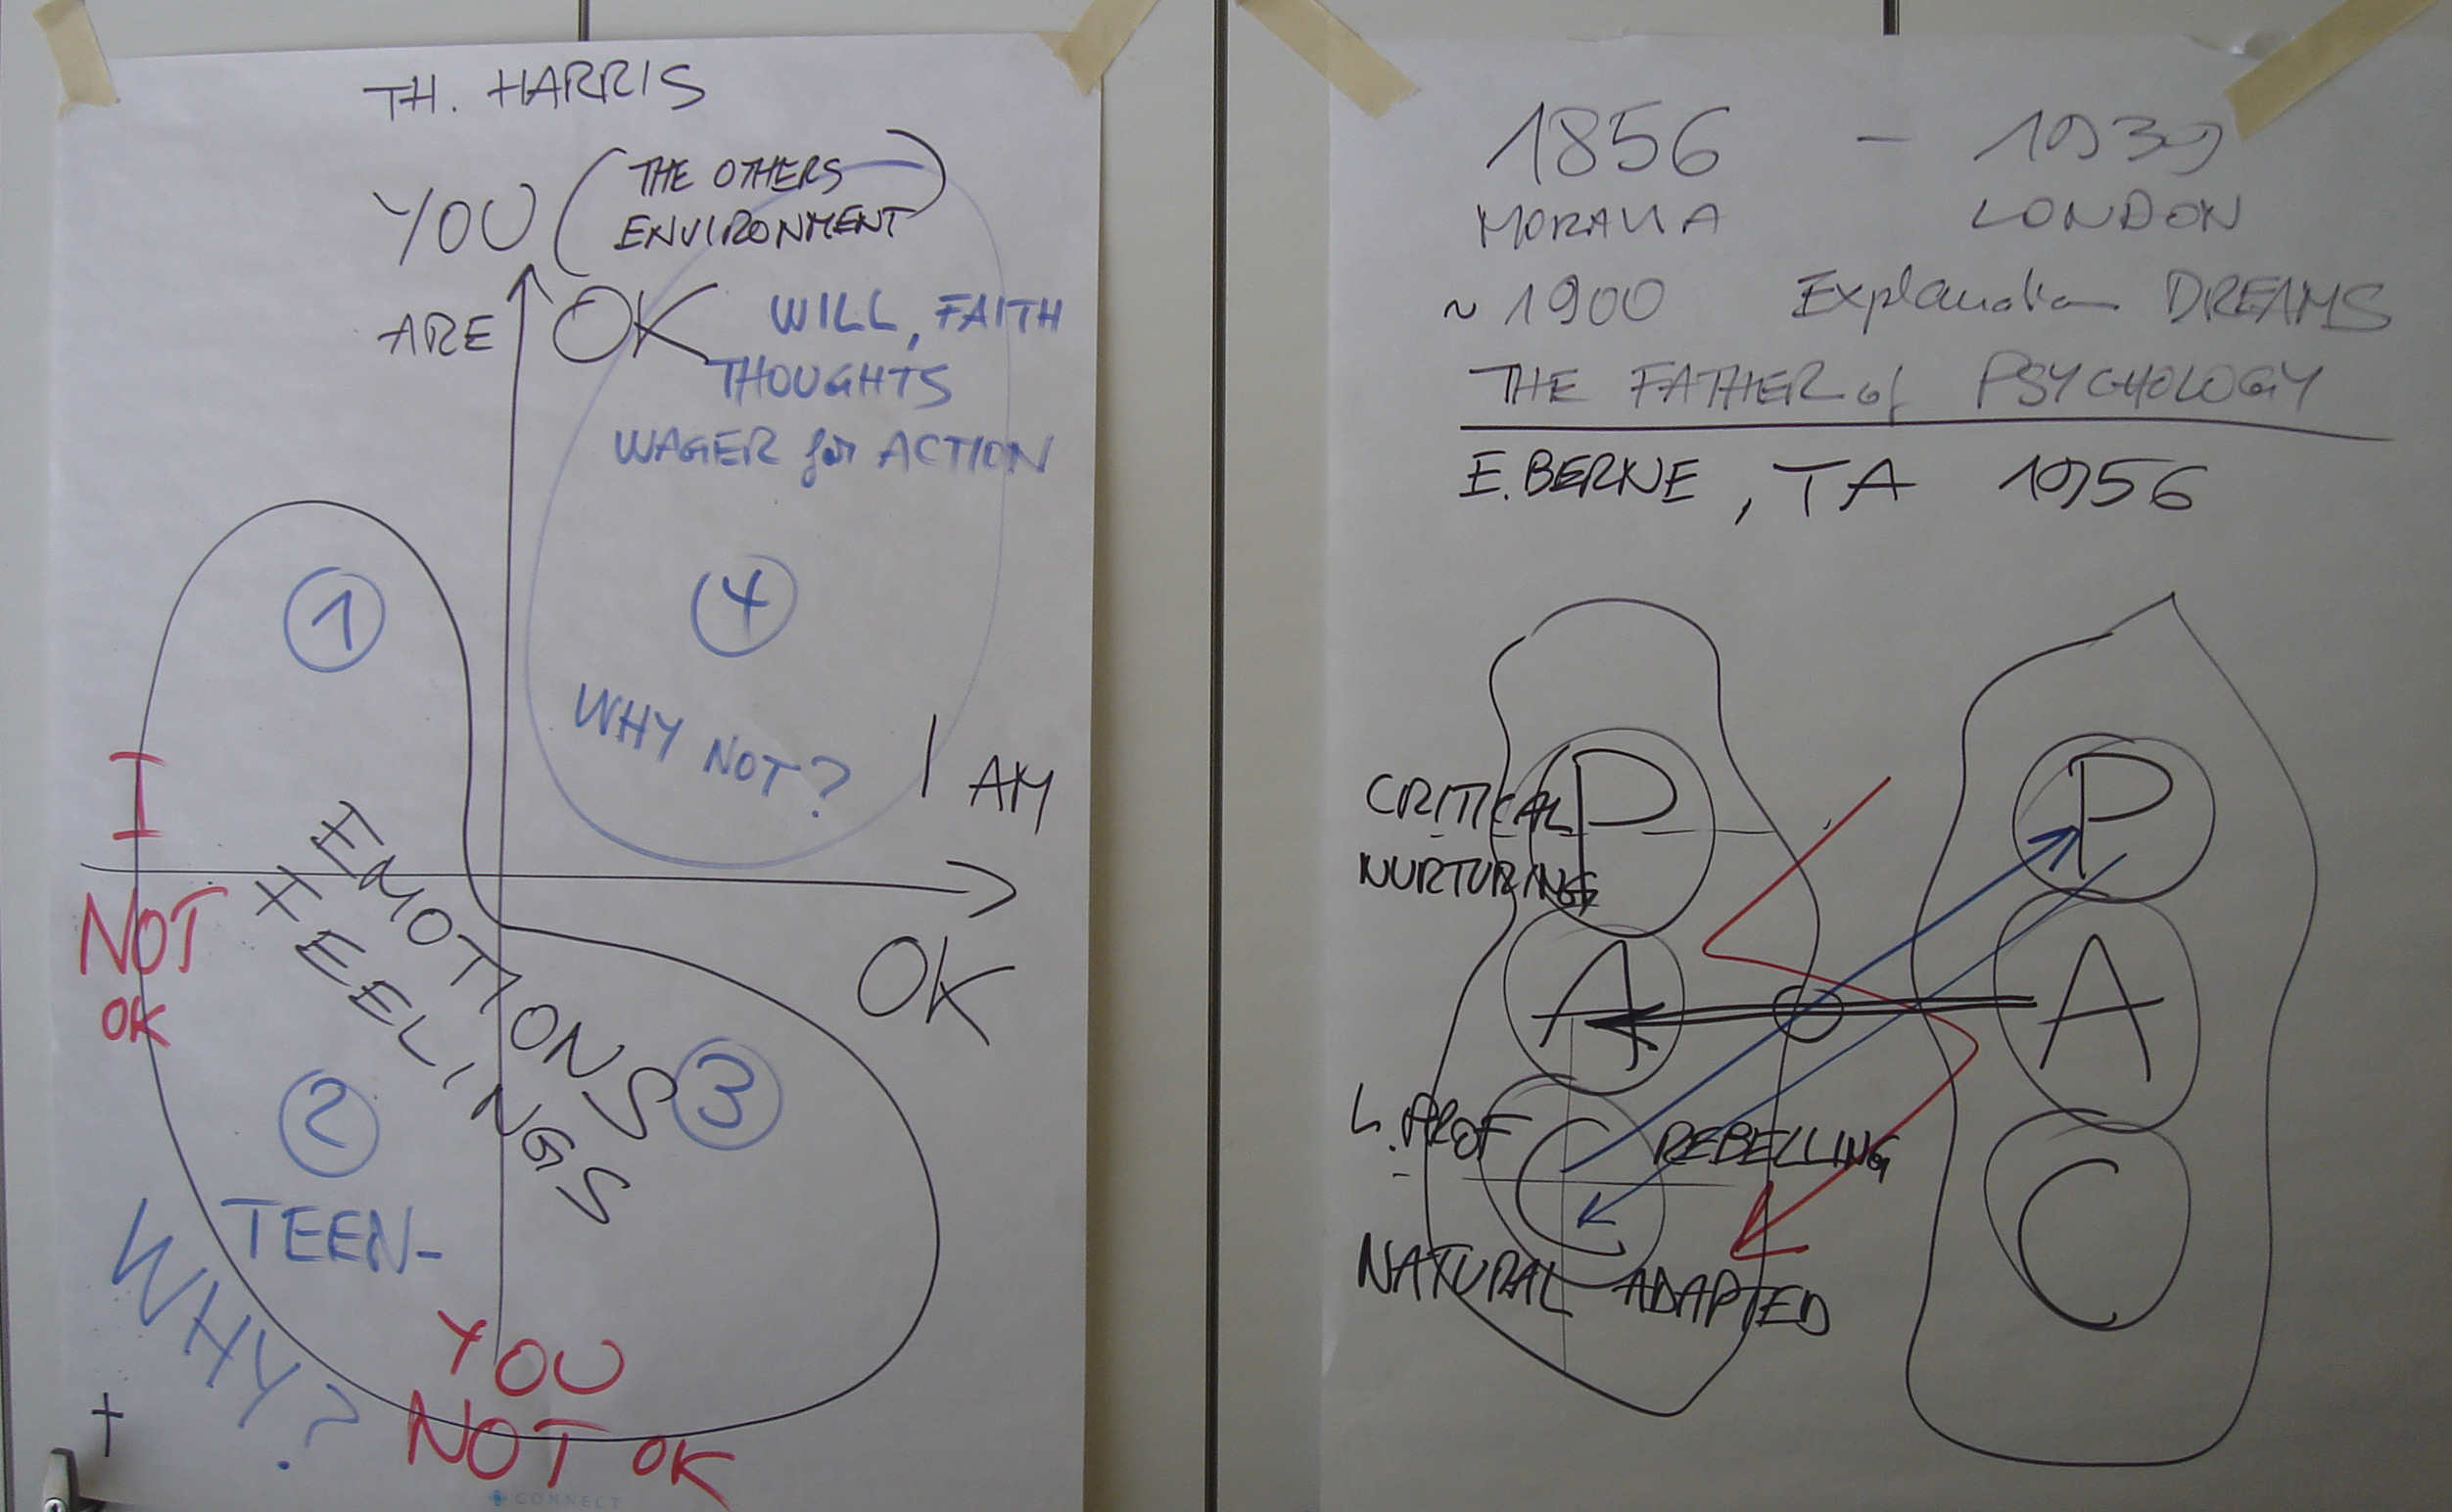 TH. HARRIS
YOU (THE OTHERS
ENVIRONMENT)
ARE OK
WILL, FAITH
THOUGHTS
WAGER for ACTION
1
4
WHY NOT?
I AM
OK
I
NOT
OK
EMOTIONS
FEELINGS
2
3
TEEN-
WHY?
YOU
NOT OK
CONNECT
1856 - 1939
MORAVIA LONDON
~ 1900 Explanation DREAMS
THE FATHER of PSYCHOLOGY
E. BERNE, TA 1956
P P
CRITICAL
NURTURING
A A
L. PROF REBELLING
C C
NATURAL ADAPTED